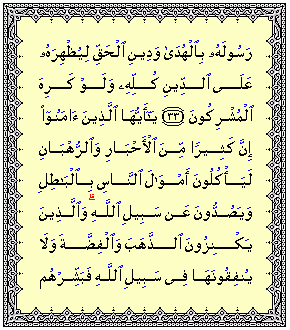 رَسُولَهُۥ بِٱلْهُدَىٰ وَدِينِ ٱلْحَقِّ لِيُظْهِرَهُۥ
عَلَى ٱلدِّينِ كُلِّهِۦ وَلَوْ كَرِهَ
ٱلْمُشْرِكُونَ ﴿٣٣﴾ يَـٰٓأَيُّهَا ٱلَّذِينَ ءَامَنُوٓا۟
إِنَّ كَثِيرًا مِّنَ ٱلْأَحْبَارِ وَٱلرُّهْبَانِ
لَيَأْكُلُونَ أَمْوَٰلَ ٱلنَّاسِ بِٱلْبَـٰطِلِ
وَيَصُدُّونَ عَن سَبِيلِ ٱللَّهِ ۗ وَٱلَّذِينَ
يَكْنِزُونَ ٱلذَّهَبَ وَٱلْفِضَّةَ وَلَا
يُنفِقُونَهَا فِى سَبِيلِ ٱللَّهِ فَبَشِّرْهُم